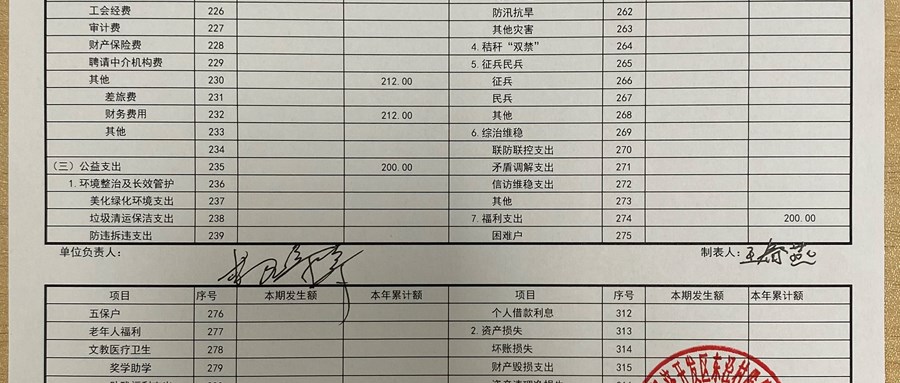 工会经费 226 防汛抗旱 262
审计费 227 其他灾害 263
财产保险费 228 4.秸秆“双禁” 264
聘请中介机构费 229 5.征兵民兵 265
其他 230 212.00 征兵 266
差旅费 231 民兵 267
财务费用 232 212.00 其他 268
其他 233 6.综治维稳 269
234 联防联控支出 270
(三)公益支出 235 200.00 矛盾调解支出 271
1.环境整治及长效管护 236 信访维稳支出 272
美化绿化环境支出 237 其他 273
垃圾清运保洁支出 238 7.福利支出 274 200.00
防违拆违支出 239 困难户 275
单位负责人: 制表人:王春燕
项目 序号 本期发生额 本年累计额 项目 序号 本期发生额 本年累计额
五保户 276 个人借款利息 312
老年人福利 277 2.资产损失 313
文教医疗卫生 278 坏账损失 314
奖学助学 279 财产毁损支出 315